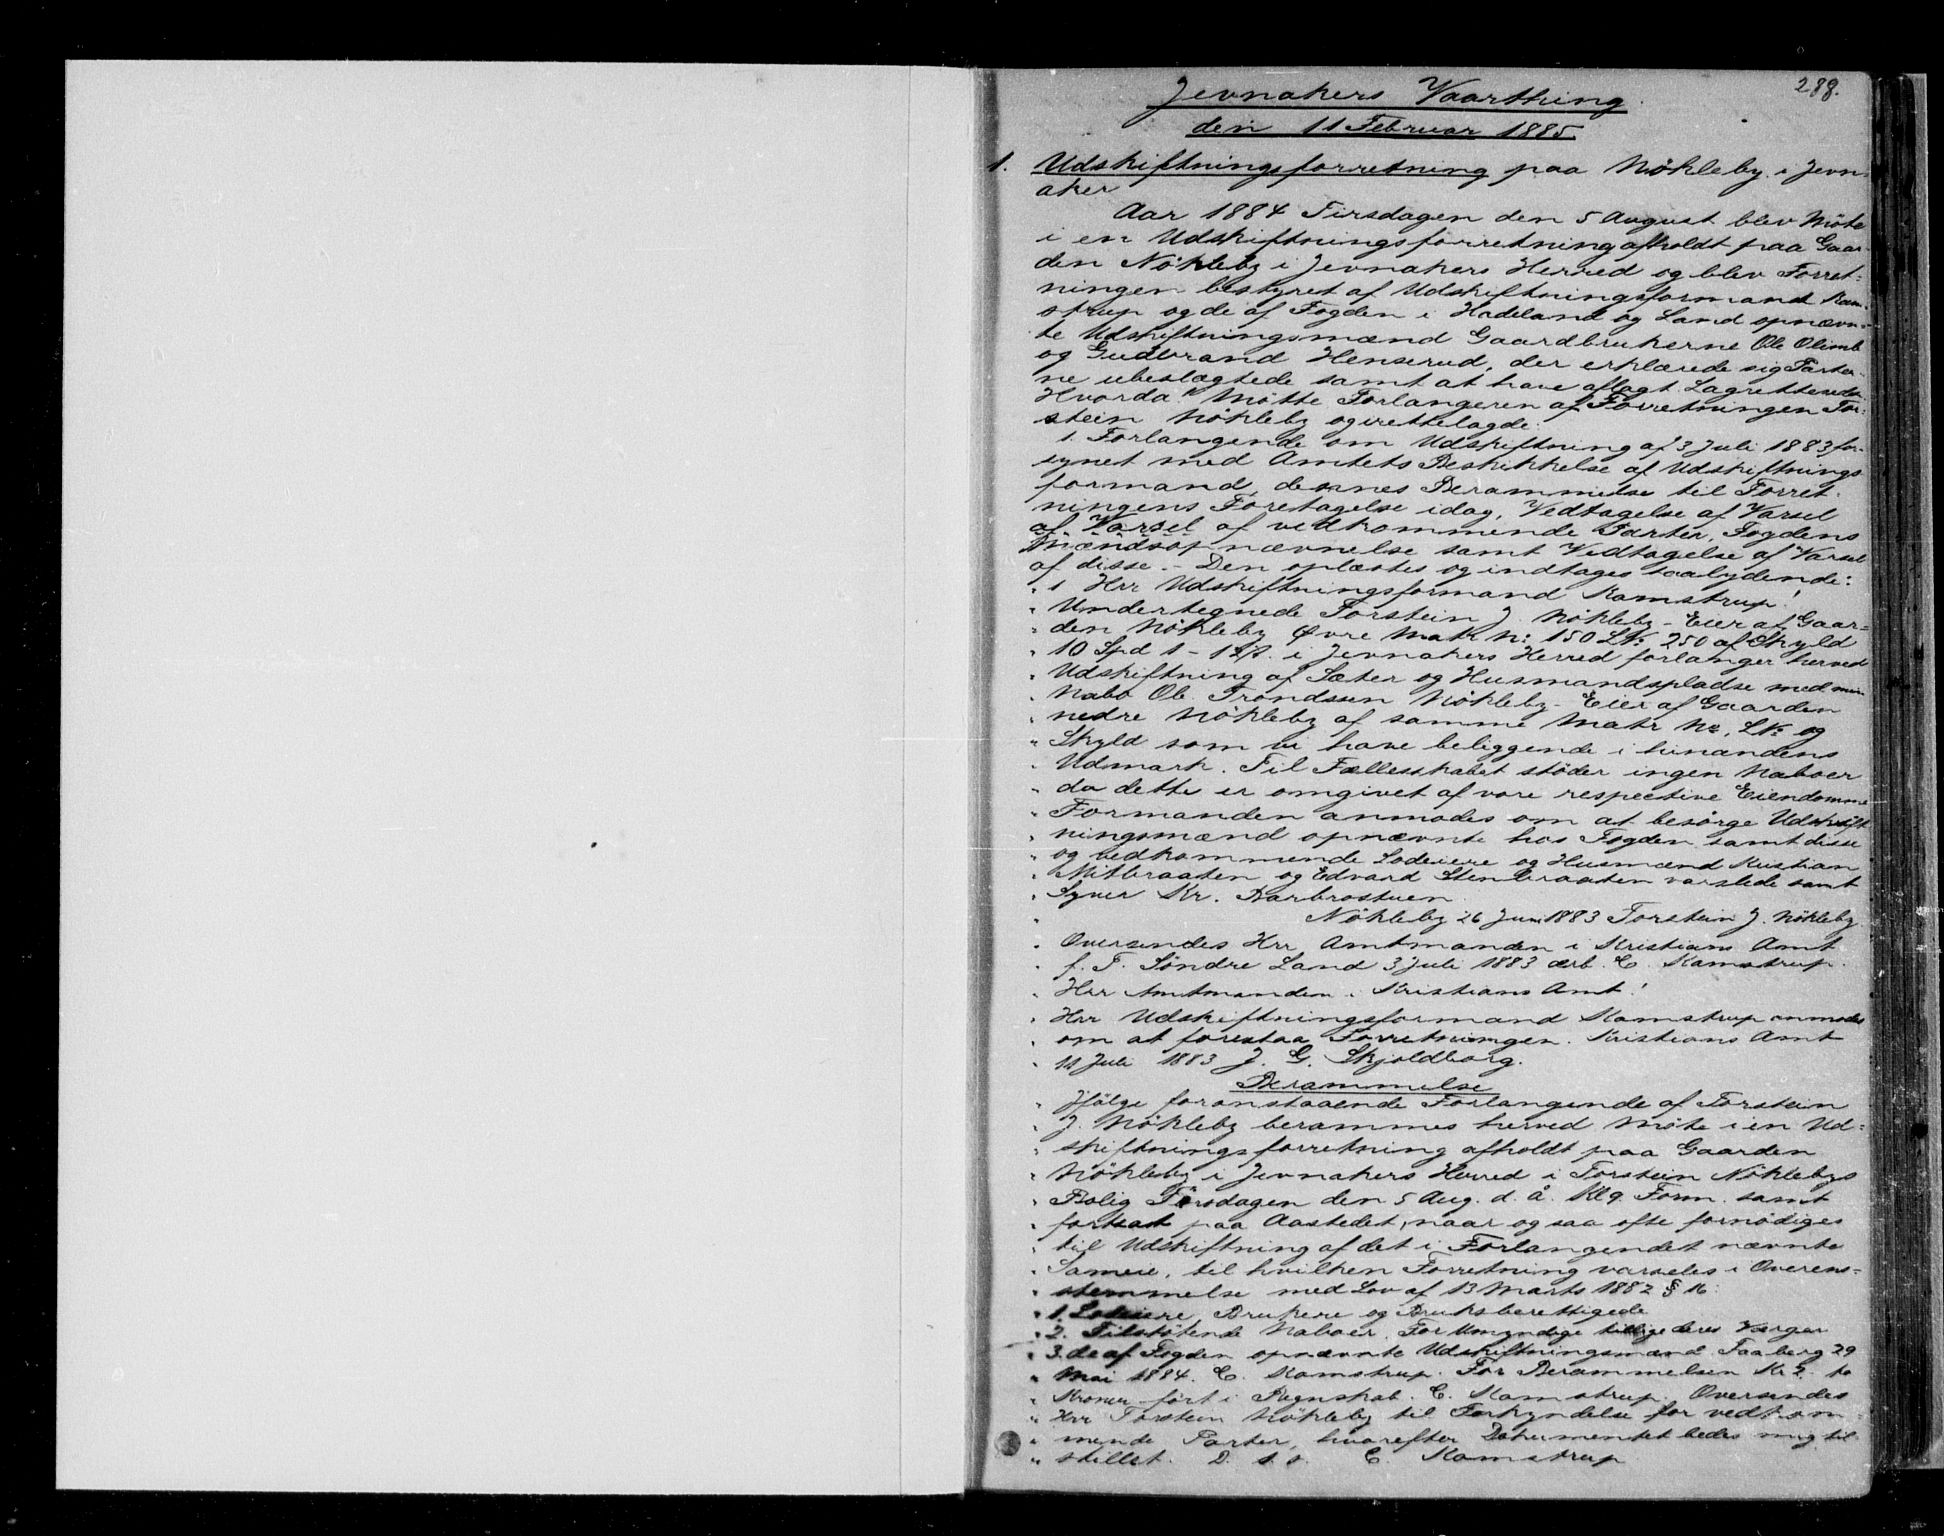 288.
Jevnakers Vaarthing
den 11 Februar 1885.
1. Udskiftningsforretning paa Nökleby i Jevn-
aker
Aar 1884 Tirsdagen den 5 August blev Möte
i en Udskiftningsforretning afholdt paa Gaar-
den Nökleby i Jevnakers Herred og blev Forret-
ningen bestyret af Udskiftningsformand Kam-
strup og de af Fogden i Hadeland og Land opnævn-
te Udskiftningsmænd Gaardbrukerne Ole Olimb
og Gudbrand Henserud, der erklærede sig Parter-
ne ubeslægtede samt at have aflagt Lagretteed.
Hvorda Mötte Forlangeren af Forretningen Tor-
stein Nökleby og irettelagde:
1. Forlangende om Udskiftning af 3 Juli 1883 for-
synet med Amtets Beskikkelse af Udskiftnings
formand, dennes Berammelse til Forret-
ningens Foretagelse idag, Vedtagelse af Varsel
af Varsel af vedkommende Parter, Fogdens
Mændsopnævnelse samt Vedtagelse af Varsel
af disse. - Den oplæstes og indtages saalydende:
" 1 Hrr Udskiftningsformand Kamstrup!
" Undertegnede Torstein J. Nökleby - Eier af Gaar-
" den Nökleby Øvre Matr N: 150 LN: 250 af Skyld
" 10 Spd 1 - 12 β. i Jevnakers Herred forlanger herved
" Udskiftning af Sæter og Husmandspladse med min
" Nabo Ole Trondsen Nökleby - Eier af Gaarden
" nedre Nökleby af samme Matr No, LN: og
" Skyld som vi have beliggende i hinandens
" Udmark. Til Fællesskabet stöder ingen Naboer
" da dette er omgivet af vore respective Eiendomme
" Formanden anmodes om at besörge Udskift
" ningsmænd opnævnte hos Fogden samt disse
" og vedkommende Lodeiere og Husmænd Kristian
" Mitbraaten og Edvard Stenbraaten varslede samt
" Syver Kr. Barbrostuen.
" Nökleby 26 Juni 1883 Torstein J. Nökleby
" Oversendes Hrr Amtmanden i Kristians Amt
" f. T. Söndre Land 3 Juli 1883 ærb. C. Kamstrup.
" Herr Amtmanden i Kristians Amt!
" Hrr Udskiftningsformand Kamstrup anmodes
" om at forestaa Forretningen. Kristians Amt
" 11 Juli 1883 J. G. Skjoldborg.
Berammelse
" Ifölge foranstaaende Forlangende af Torstein
" J. Nökleby berammes herved Möte i en Ud-
" skiftningsforretning afholdt paa Gaarden
" Nökleby i Jevnakers Herred i Torstein Nöklebys
" Bolig Tirsdagen den 5 Aug. d. å. Kl 9. Form. samt
" fortsat paa Aastedet, naar og saa ofte fornödiges
" til Udskiftning af det i Forlangendet nævnte
" Sameie, til hvilken Forretning varsles i Overens-
" stemmelse med Lov af 13 Marts 1882 § 16:
" 1. Lodeiere Brukere og Bruksberettigede
" 2. Tilstötende Naboer. For Umyndige tillige deres Værger
" 3. de af Fogden opnævnte Udskiftningsmænd. Faaberg 29
" Mai 1884. C. Kamstrup. For Berammelsen Kr 2. to
" Kroner fört i Regnskab. C. Kamstrup. Oversendes
" Hrr Torstein Nökleby til Forkyndelse for vedkom-
" mende Parter, hvorefter Dokumentet bedes mig til-
" stillet. D. s. s. C. Kamstrup